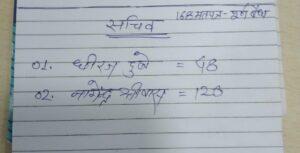 168 मतपत्र - पूर्ण वैध
सचिव
01. धीरज दुबे = 48
02. नागेन्द्र श्रीवास = 120